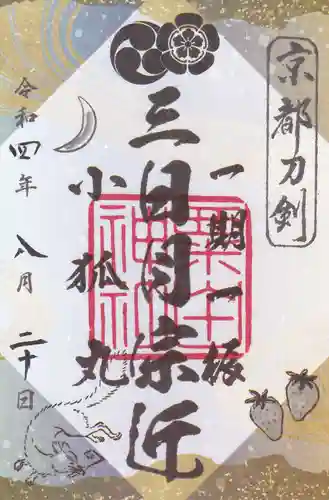 京都刀剣
一期一振
三日月宗近
小狐丸
令和四年 八月 二十日
粟田神社